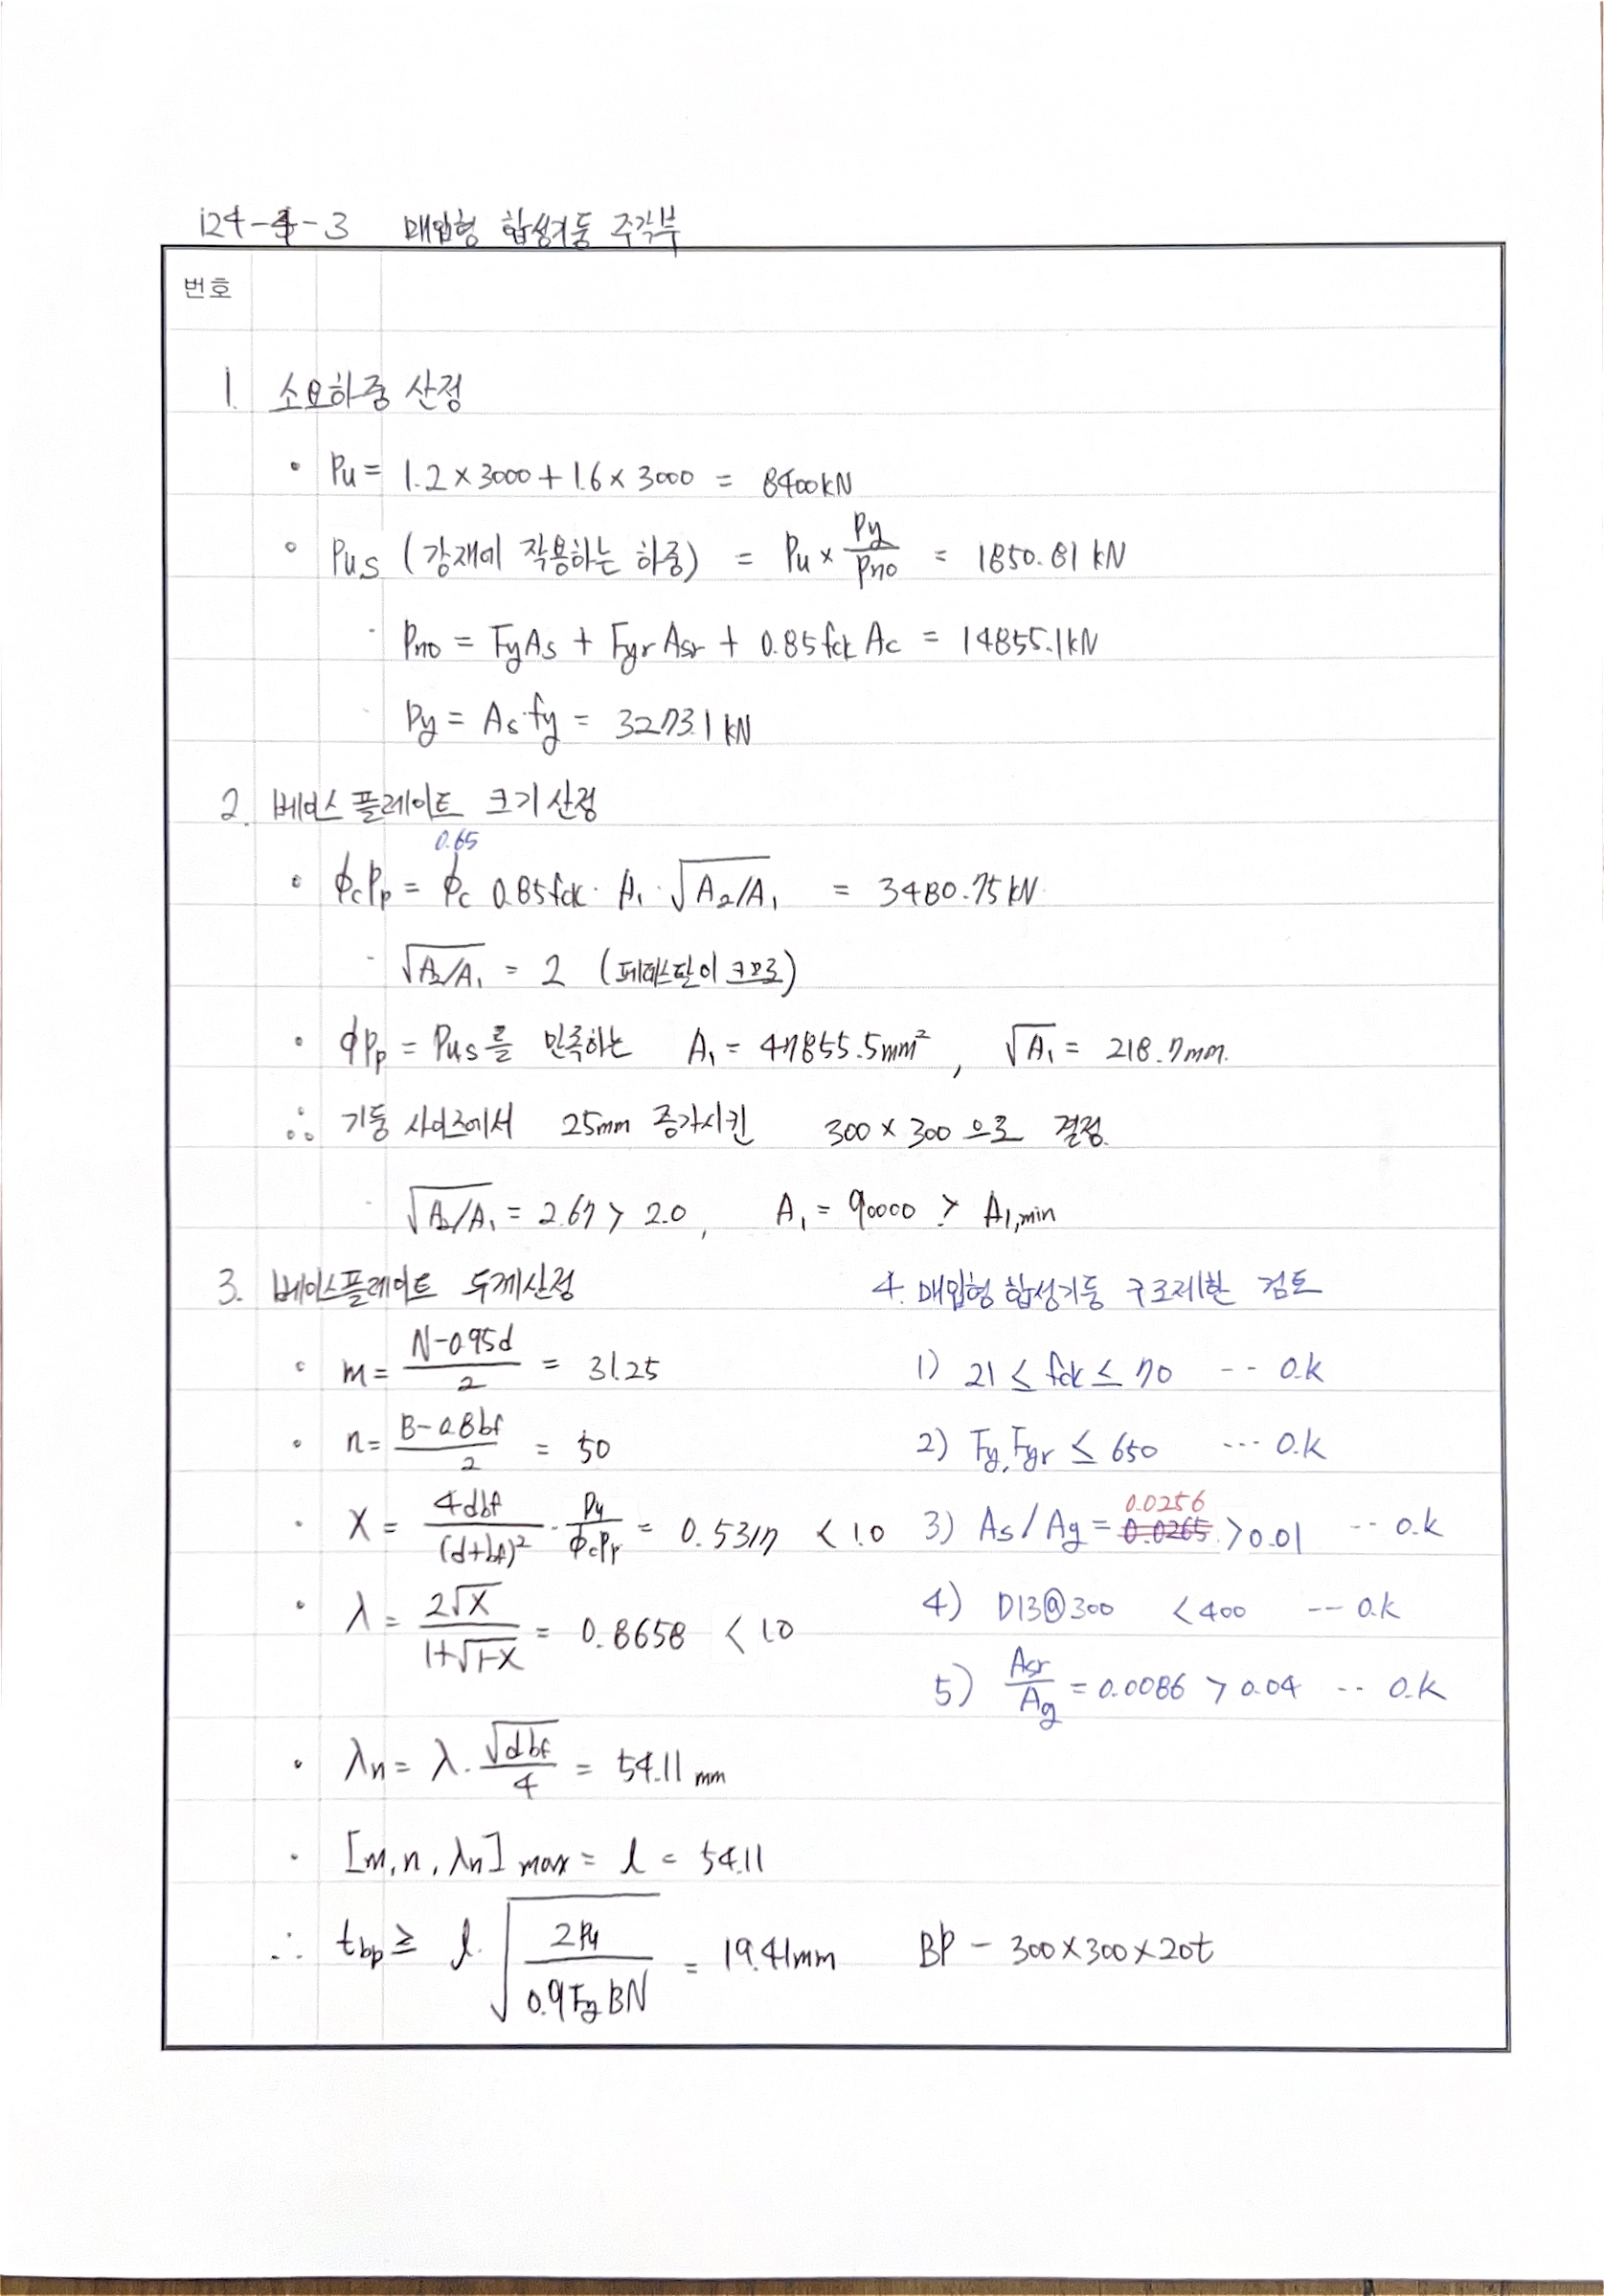 124-4-3 매입형 합성기둥 주각부
번호
1. 소요하중 산정
• Pu = 1.2 × 3000 + 1.6 × 3000 = 8400kN
• Pus (강재에 작용하는 하중) = Pu × Py/Pno = 1850.81 kN
· Pno = FyAs + FyrAsr + 0.85fck Ac = 14855.1kN
· Py = As·fy = 3273.1 kN
2. 베이스 플레이트 크기 산정
0.65
• ϕcPp = ϕc 0.85fck · A₁ · √(A₂/A₁) = 3480.75kN
· √(A₂/A₁) = 2 (페데스탈이 크므로)
• ϕPp = Pus를 만족하는 A₁ = 47855.5mm², √A₁ = 218.7mm.
∴ 기둥 사이즈에서 25mm 증가시킨 300 × 300 으로 결정.
· √(A₂/A₁) = 2.67 > 2.0, A₁ = 90000 > A1,min
3. 베이스플레이트 두께산정
• m = (N-0.95d)/2 = 31.25
• n = (B-0.8bf)/2 = 50
· X = 4dbf/(d+bf)² · Pu/ϕcPp = 0.5317 < 1.0
• λ = 2√X/(1+√(1-X)) = 0.8658 < 1.0
• λn = λ · √(dbf)/4 = 54.11 mm
· [m, n, λn] max = l = 54.11
∴ tbp ≥ l · √(2Pu/(0.9Fy BN)) = 19.41mm BP - 300×300×20t
4. 매입형 합성기둥 구조제한 검토
1) 21 ≤ fck ≤ 70 -- O.k
2) Fy, Fyr ≤ 650 --- O.k
0.0256
3) As / Ag = 0.0265 > 0.01 -- O.k
4) D13@300 < 400 -- O.k
5) Asr/Ag = 0.0086 > 0.04 -- O.k